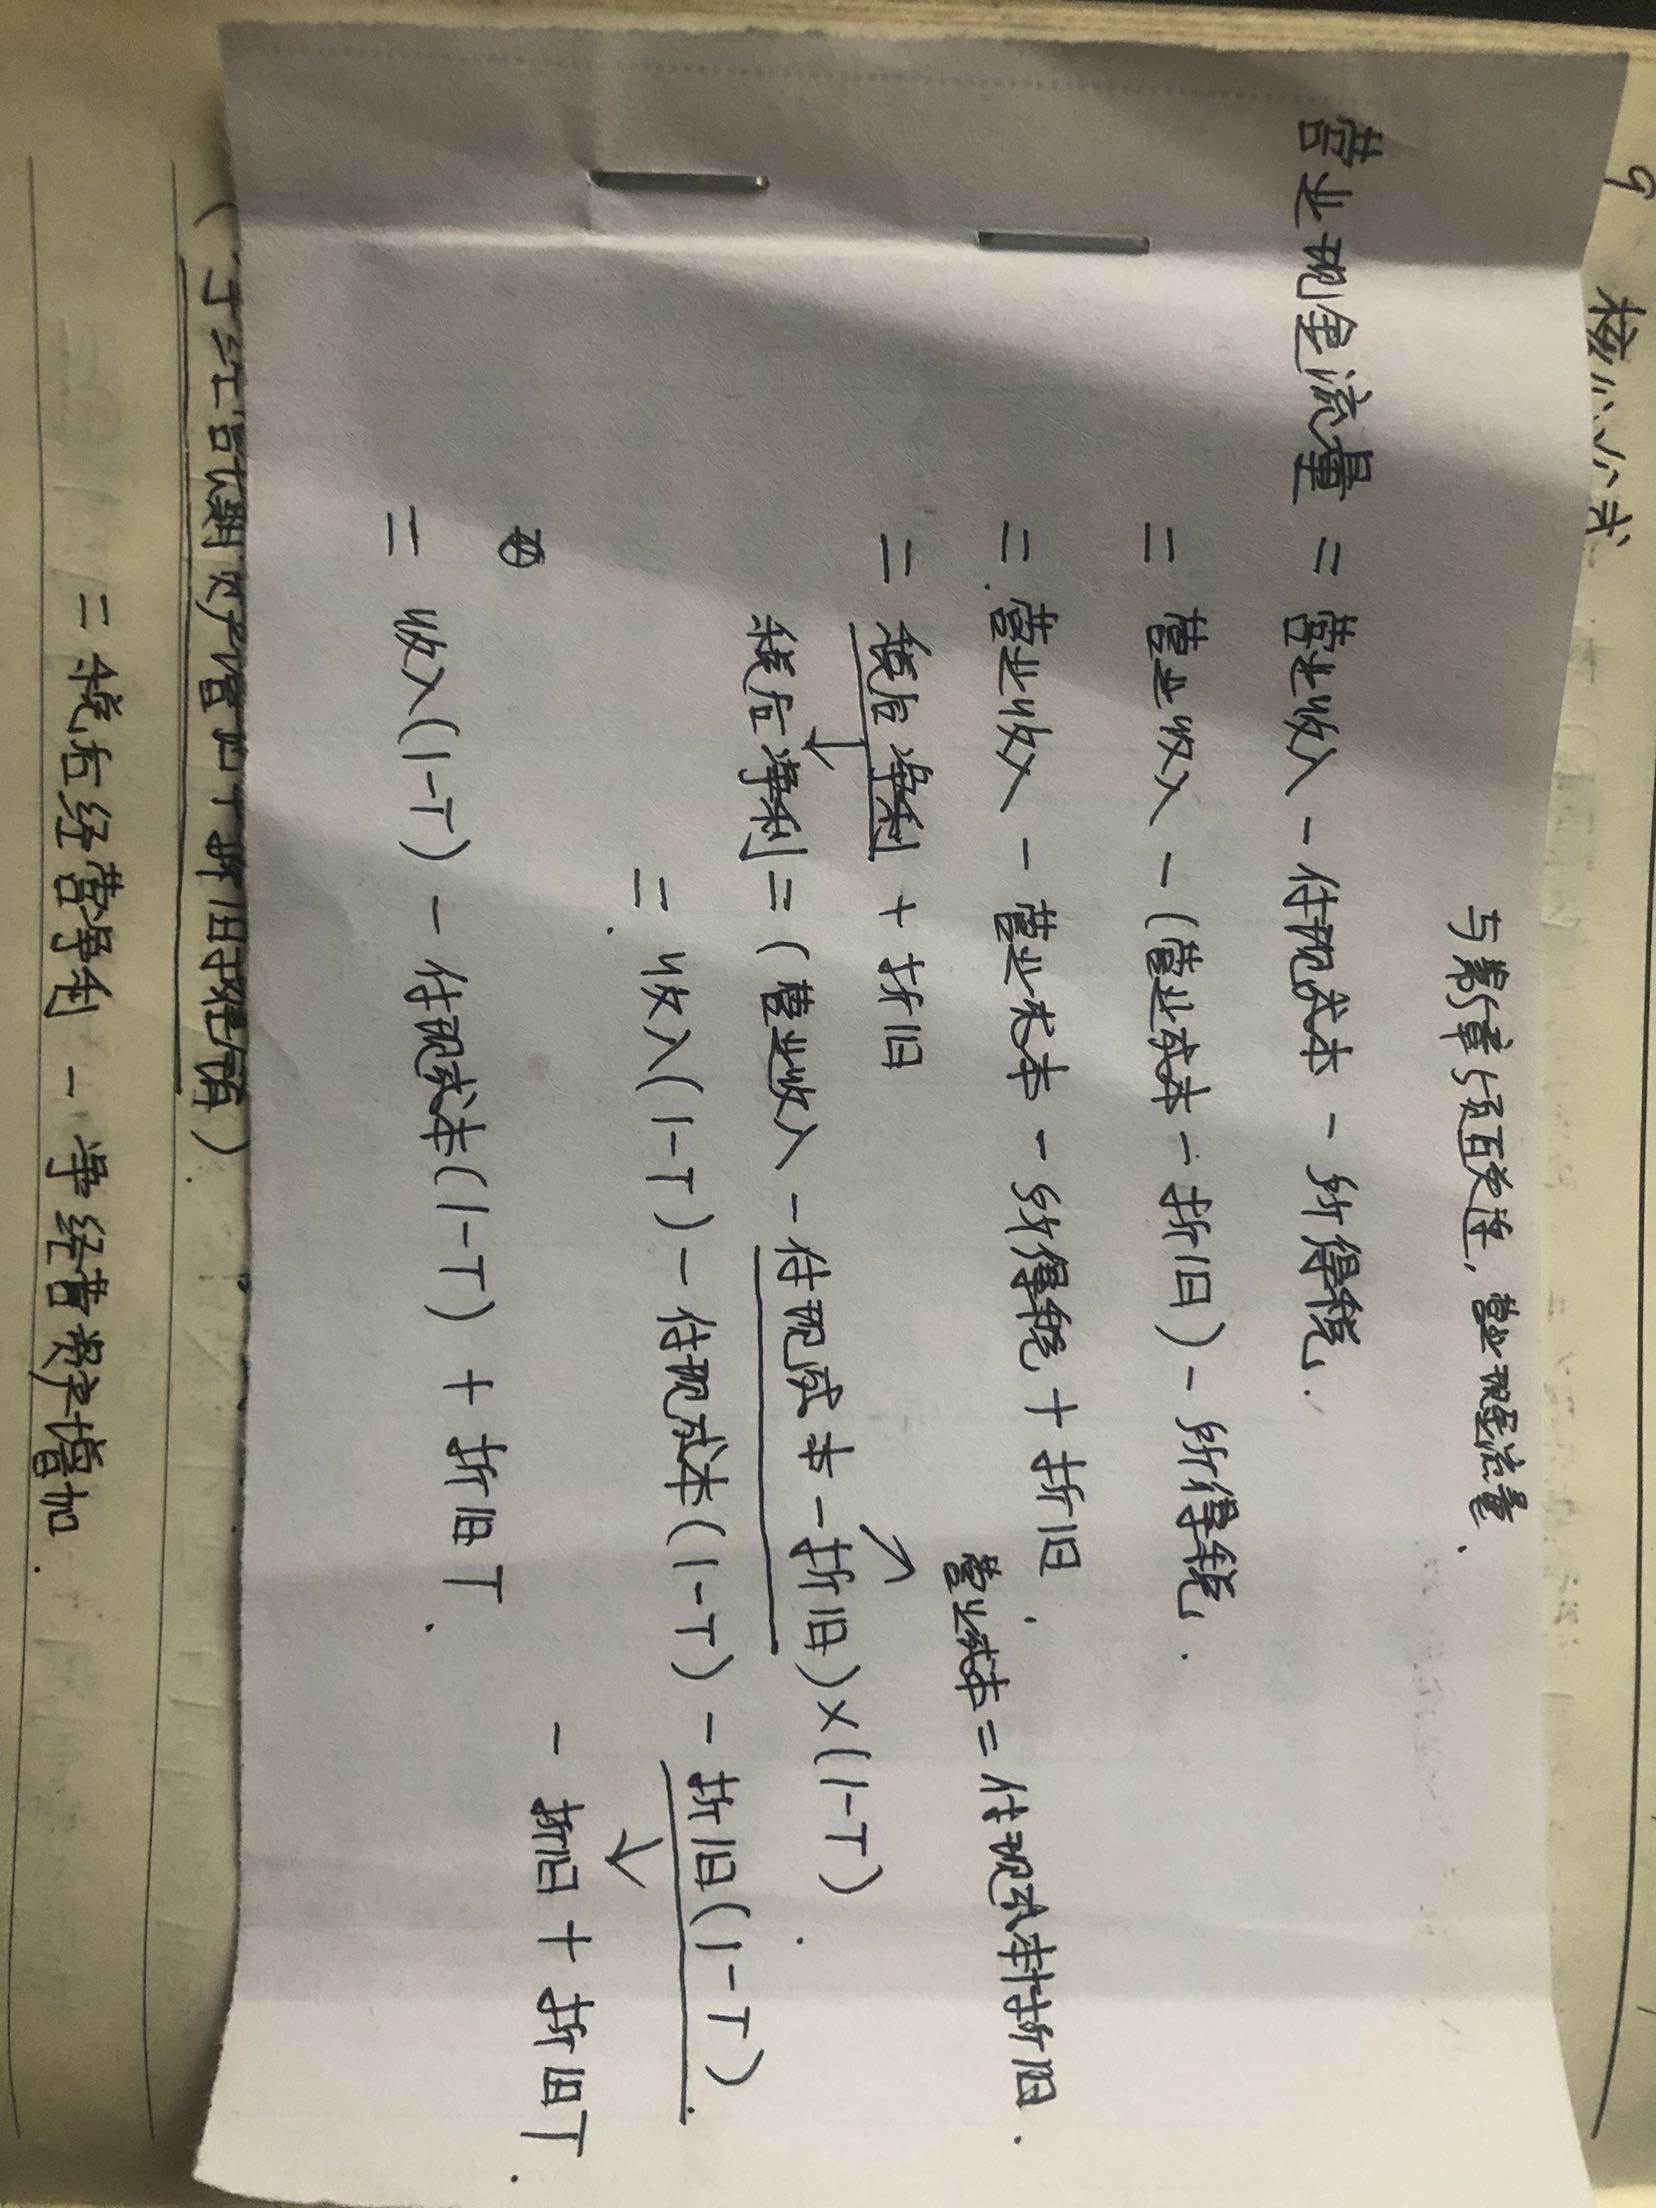 9 核心公式
与第5章5页互关连，营业现金流量、
营业现金流量 = 营业收入 - 付现成本 - 所得税.
= 营业收入 - (营业成本 - 折旧) - 所得税.
= 营业收入 - 营业成本 - 所得税 + 折旧.
营业成本 = 付现成本+折旧.
= 税后净利 + 折旧
↓
税后净利 = (营业收入 - 付现成本 - 折旧)×(1-T).
= 收入(1-T) - 付现成本(1-T) - 折旧(1-T).
↓
- 折旧 + 折旧T.
= 收入(1-T) - 付现成本(1-T) + 折旧T.
增加+折旧摊销)
= 税后经营净利 - 净经营资产增加.